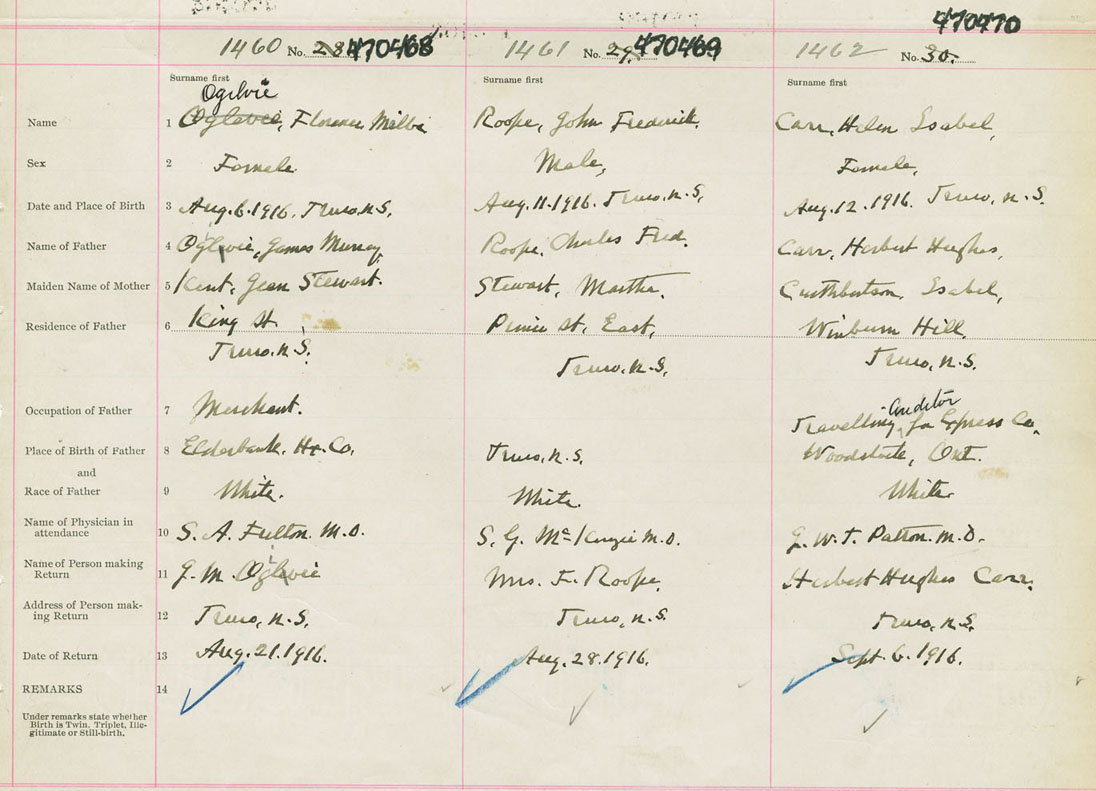 470470
1460 No. 28 470468 1461 No. 29. 470469 1462 No. 30.
Surname first Surname first Surname first
Ogilvie
Name 1 Oglevie, Florence Melba Roope, John Frederick. Carr, Helen Isabel,
Sex 2 Female Male, Female,
Date and Place of Birth 3 Aug. 6. 1916. Truro, N.S. Aug. 11. 1916. Truro, N.S, Aug. 12. 1916. Truro, N.S.
Name of Father 4 Oglevie, James Murray, Roope, Charles Fred. Carr, Herbert Hughes,
Maiden Name of Mother 5 Kent, Jean Stewart. Stewart, Martha. Cuthbertson, Isabel,
Residence of Father 6 King St. Prince St. East, Winburn Hill,
Truro, N.S. Truro, N.S, Truro, N.S.
Auditor
Occupation of Father 7 Merchant. Travelling for Express Co.
Place of Birth of Father 8 Elderbank, Hx. Co, Truro, N.S. Ont.
and
Race of Father 9 White. White. White
Name of Physician in
attendance 10 S. A. Fulton M.D. S. G. McKenzie M.D. Patton M.D.
Name of Person making
Return 11 J. M. Oglevie Mrs. F. Roope, Herbert Hughes Carr.
Address of Person mak-
ing Return 12 Truro, N.S. Truro, N.S. Truro, N.S.
Date of Return 13 Aug. 21. 1916. Aug. 28. 1916. Sept. 6. 1916.
REMARKS 14
Under remarks state whether
Birth is Twin, Triplet, Ille-
gitimate or Still-birth.